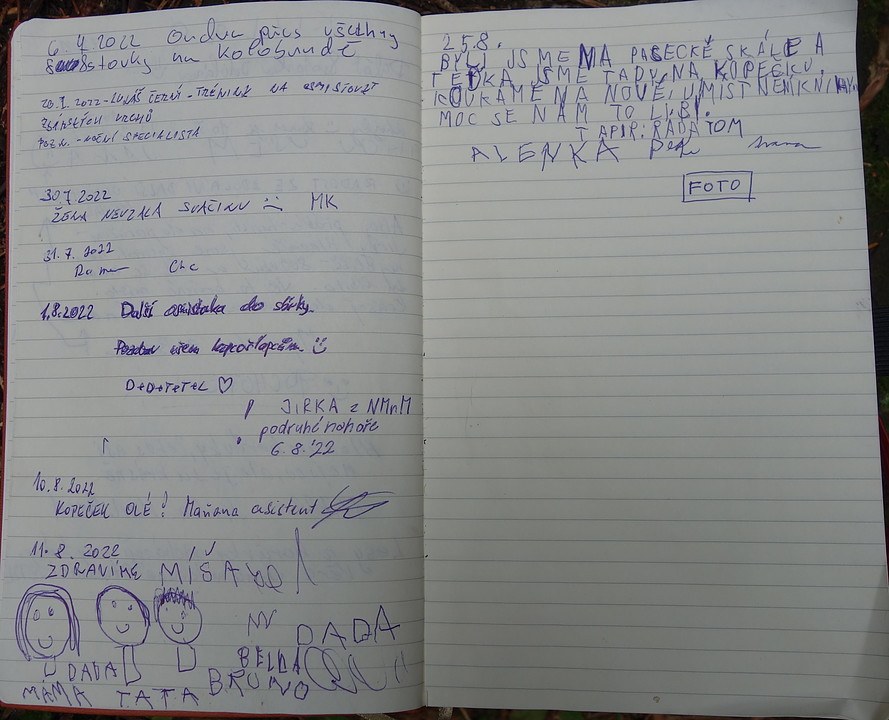 6. 4 2022 Ondra přes všechny
stovky na koloběžce
20.7. 2022 - LUKÁŠ ČERNÝ - TRÉNINK NA OSMISTOVKY
ŽĎÁRSKÝCH VRCHŮ
POZN. - NOČNÍ SPECIALISTA
30.7.2022
ŽENA NEVZALA SVAČINU :( MK
31.7. 2022
1.8.2022 Další osmistovka do sbírky.
Pozdrav všem kopcošlapům.
D+D+T+T+L ♡
JIRKA z NMnM
podruhé nahoře
6.8.'22
10.8.2022
KOPEČEK OLÉ! Maňana asistent
11.8. 2022
ZDRAVÍME MÍŠA
DADA
BELLA
DADA
BRUNO
MÁMA TATA
25.8.
BYLI JSME NA PASECKÉ SKÁLE A
TEĎKA JSME TADY NA KOPEČKU.
KOUKÁME NA NOVĚ UMÍSTNĚNÍ KNIHY.
MOC SE NÁM TO LÍBÍ.
TAPIR: RÁĎA TOM
ALENKA
FOTO